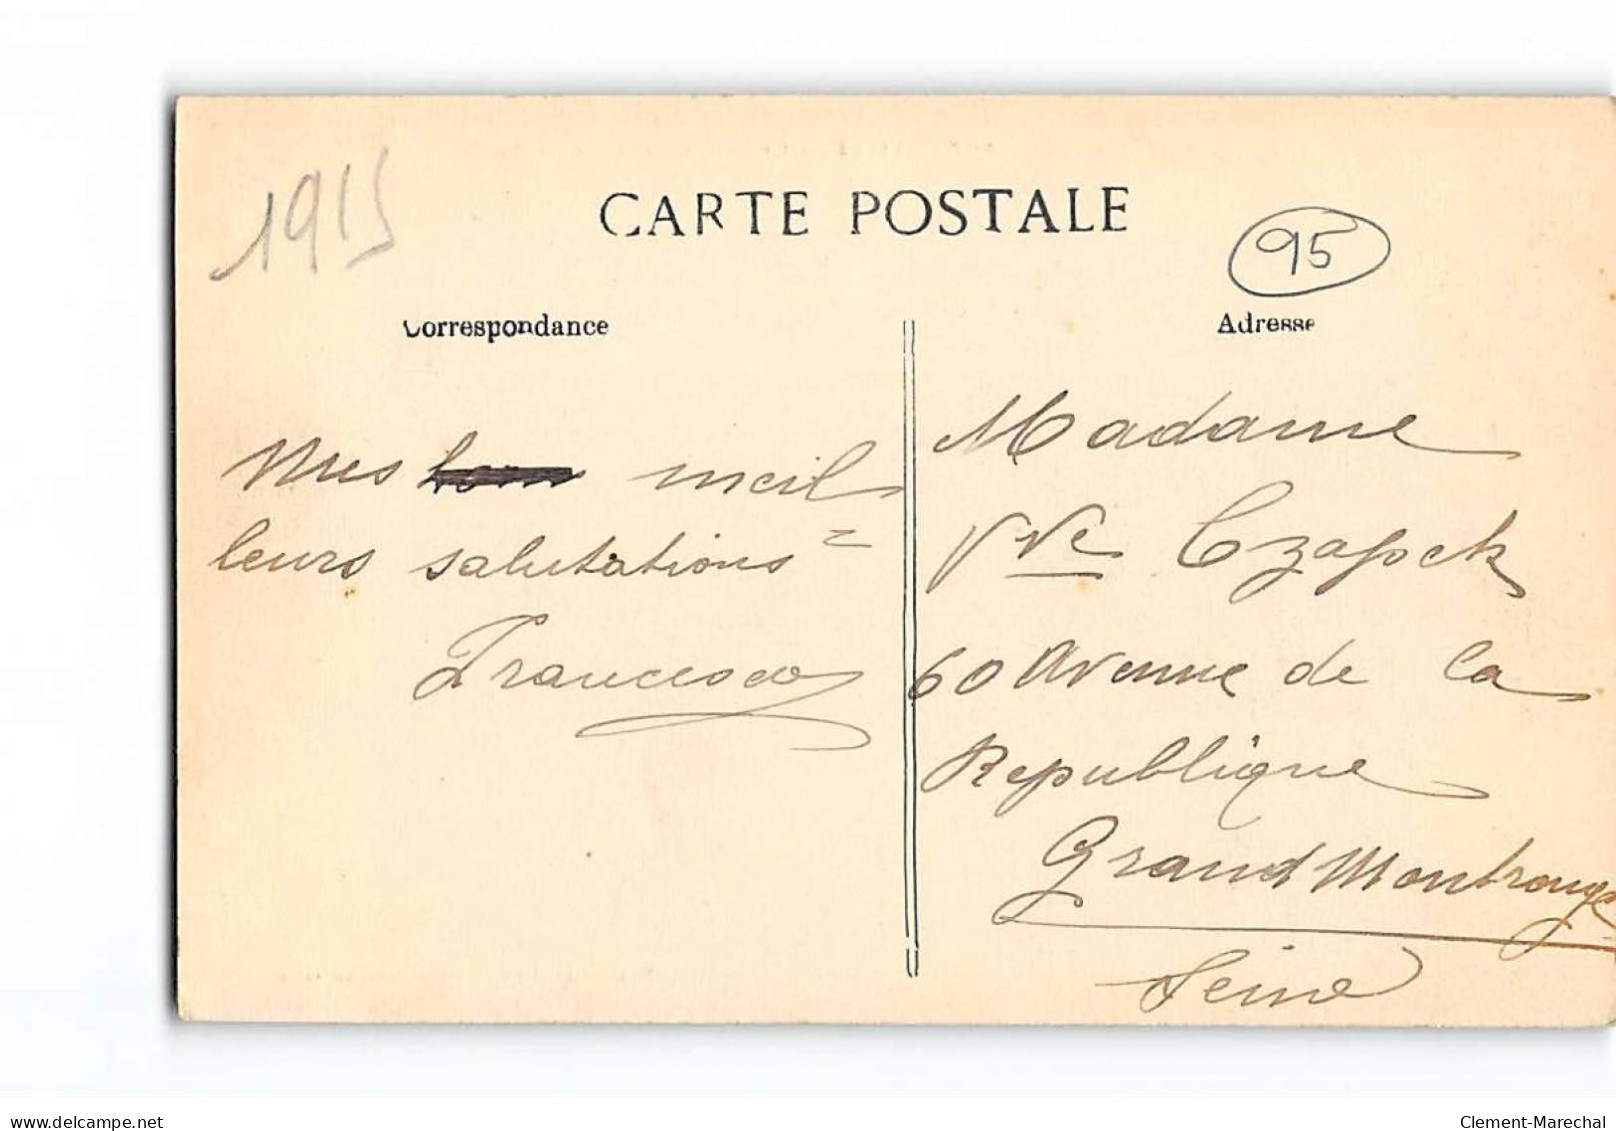 1915
CARTE POSTALE
95
Correspondance
Adresse
Mes meil
leurs salutations =
Francesco
Madame
Vve Czapsck
60 Avenue de la
Republique
Grand Montrouge
Seine
delcampe.net
Clement-Marechal